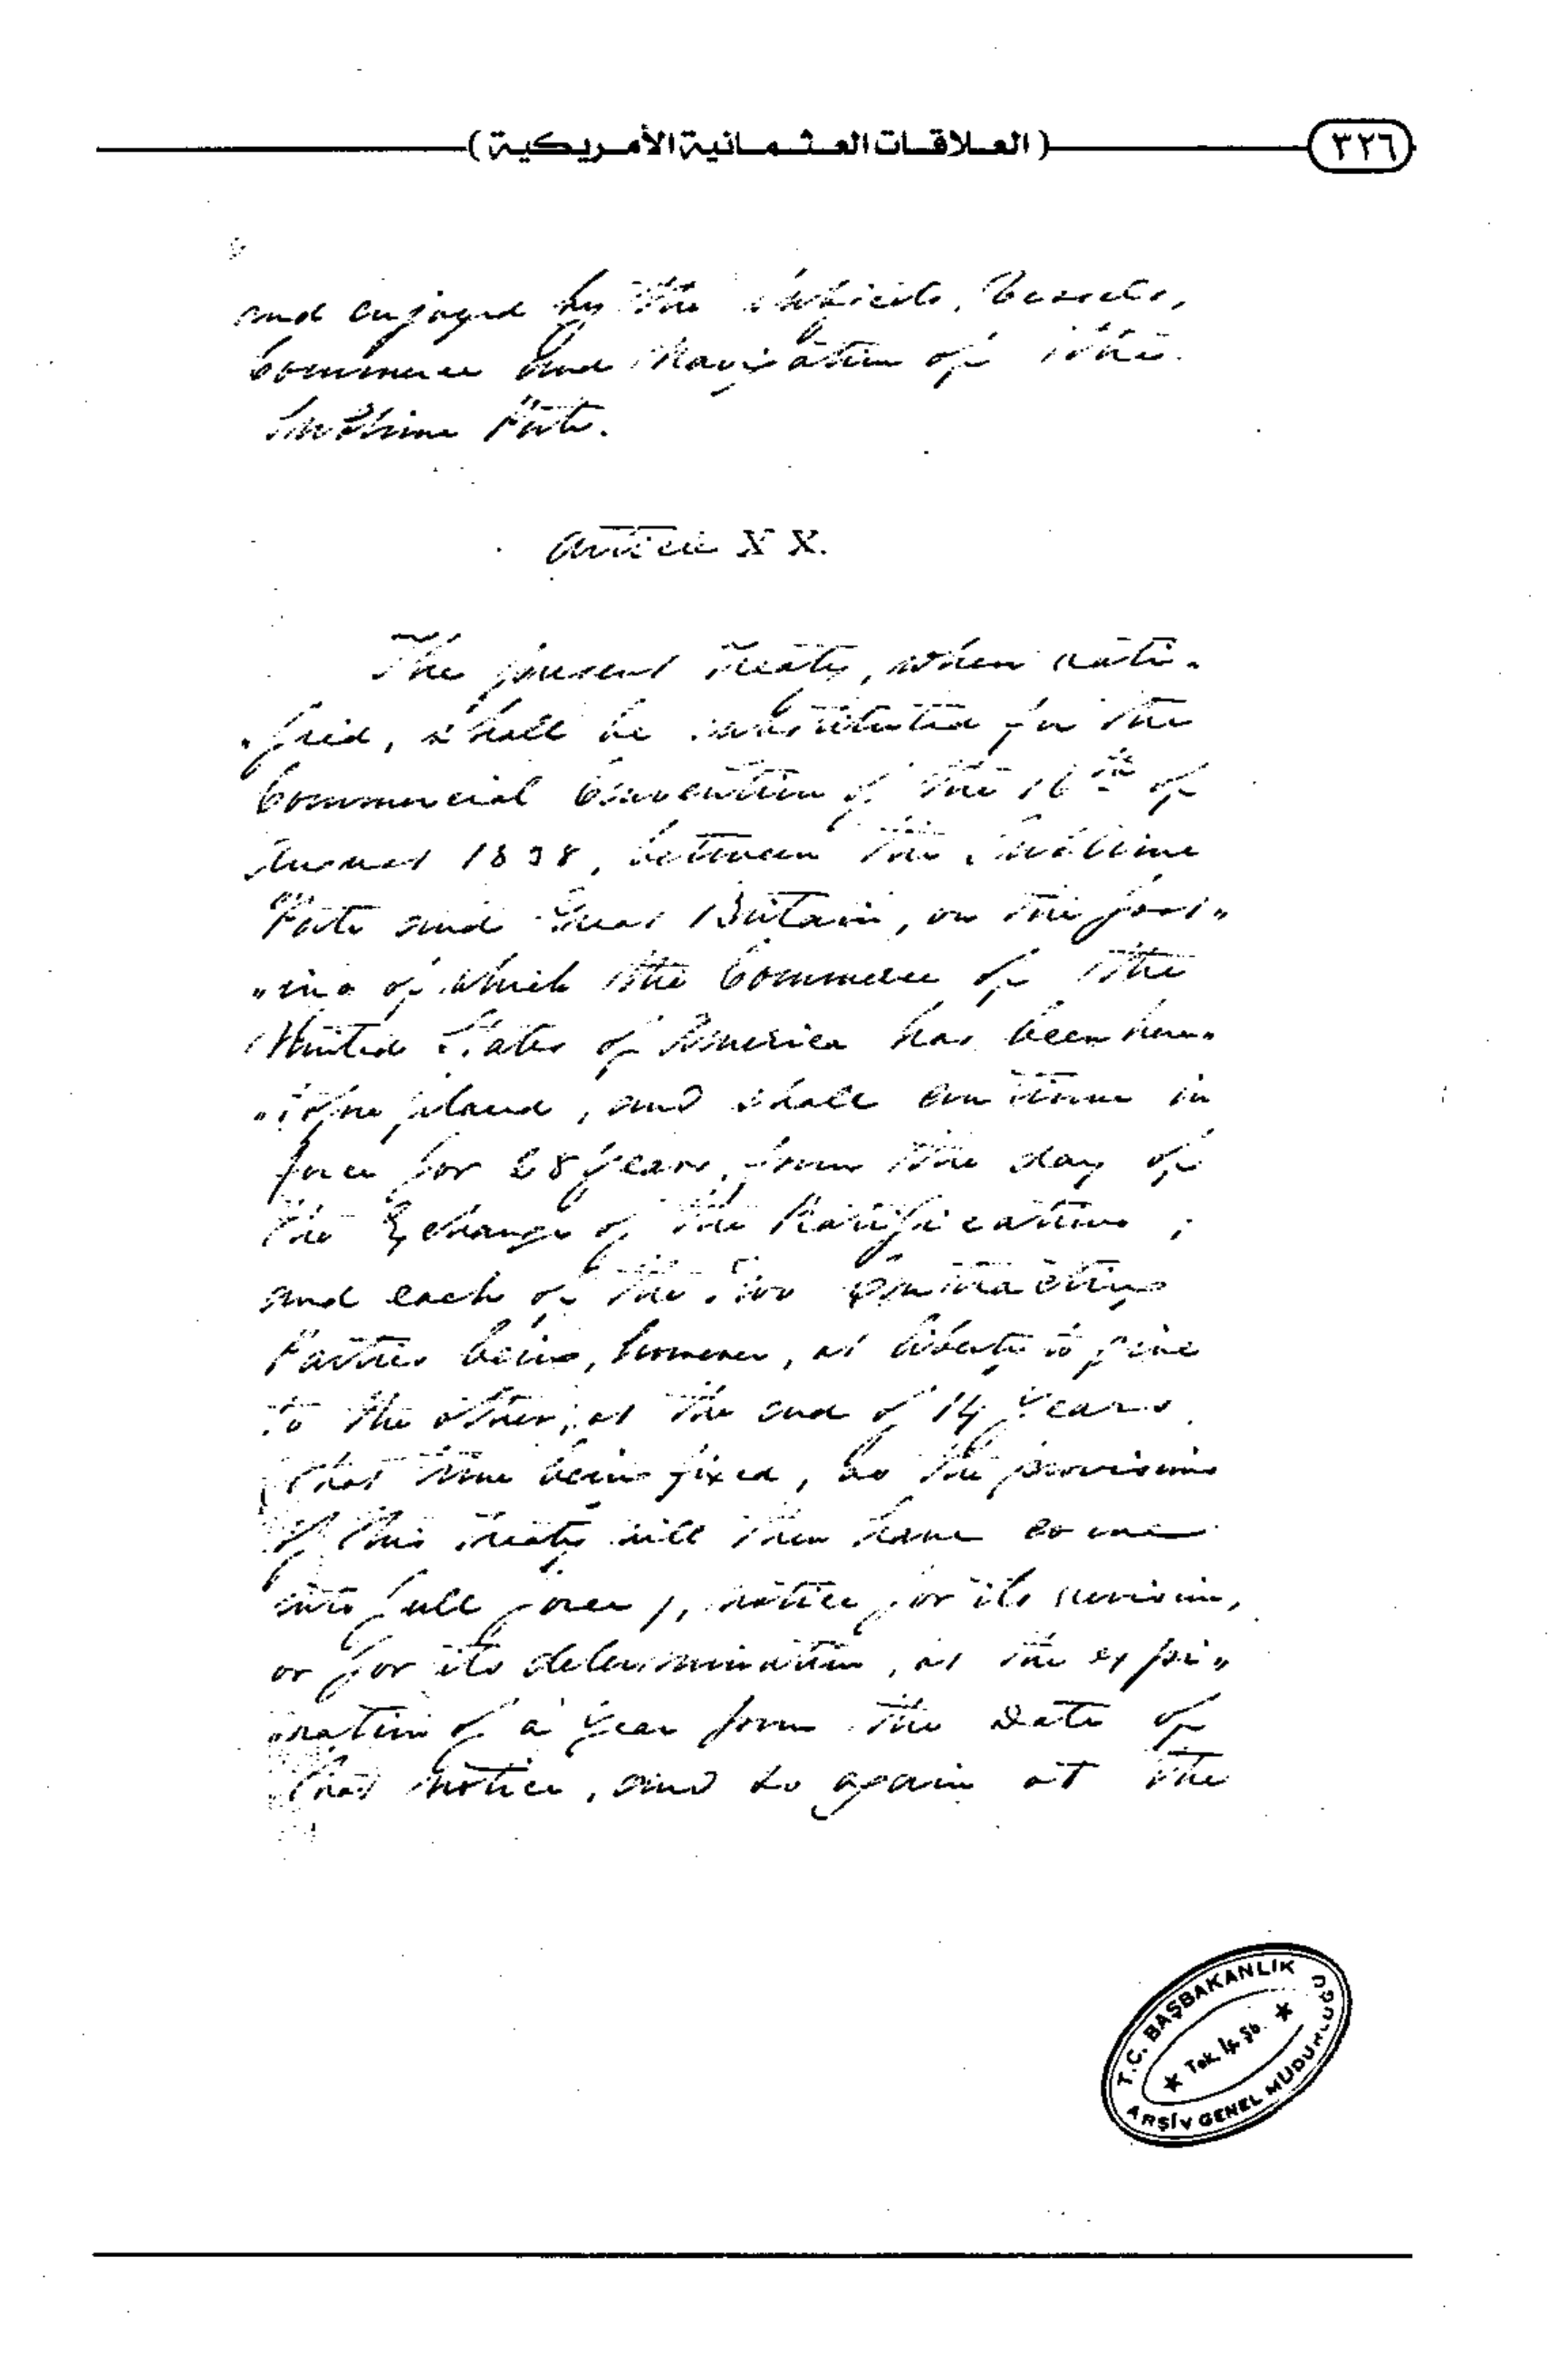 (العلاقات العثمانية الأمريكية)
٣٢٦
and enjoyed by the subjects, Vessels,
Commerce and Navigation of the
Sublime Porte.
Article XX.
The present treaty, when rati-
-fied, shall be substituted for the
Commercial Convention of the 16th of
August 1838, between the Sublime
Porte and Great Britain, on the foot"
"ing of which the Commerce of the
United States of America has been here-
"tofore placed, and shall continue in
force for 28 years, from the day of
the Exchange of the Ratifications;
and each of the Two Contracting
Parties being, however, at liberty to give
to the other, at the end of 14 years,
(that time being fixed, as the provisions
of this treaty will then have come
into full force), notice for its revision,
or for its determination, at the expi"
"ration of a year from the date of
that notice, and so again at the
T.C. BAŞBAKANLIK
ARŞİV GENEL MÜDÜRLÜĞÜ